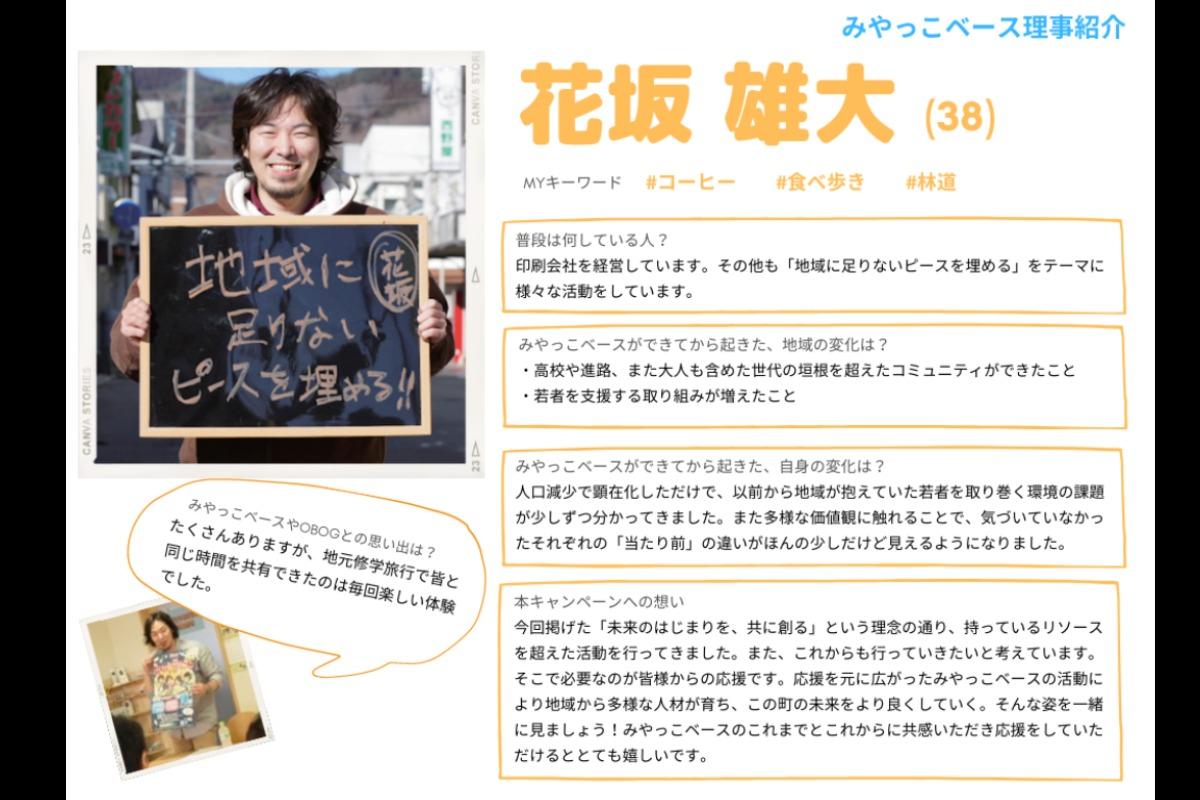 みやっこベース理事紹介
花坂 雄大 (38)
MYキーワード #コーヒー #食べ歩き #林道
CANVA STORIES
23
西野屋
地域に
花坂
足りない
ピースを埋める!!
CANVA STORIES
23
普段は何している人？
印刷会社を経営しています。その他も「地域に足りないピースを埋める」をテーマに
様々な活動をしています。
みやっこベースができてから起きた、地域の変化は？
・高校や進路、また大人も含めた世代の垣根を超えたコミュニティができたこと
・若者を支援する取り組みが増えたこと
みやっこベースができてから起きた、自身の変化は？
人口減少で顕在化しただけで、以前から地域が抱えていた若者を取り巻く環境の課題
が少しずつ分かってきました。また多様な価値観に触れることで、気づいていなかっ
たそれぞれの「当たり前」の違いがほんの少しだけど見えるようになりました。
みやっこベースやOBOGとの思い出は？
たくさんありますが、地元修学旅行で皆と
同じ時間を共有できたのは毎回楽しい体験
でした。
本キャンペーンへの想い
今回掲げた「未来のはじまりを、共に創る」という理念の通り、持っているリソース
を超えた活動を行ってきました。また、これからも行っていきたいと考えています。
そこで必要なのが皆様からの応援です。応援を元に広がったみやっこベースの活動に
より地域から多様な人材が育ち、この町の未来をより良くしていく。そんな姿を一緒
に見ましょう！みやっこベースのこれまでとこれからに共感いただき応援をしていた
だけるととても嬉しいです。